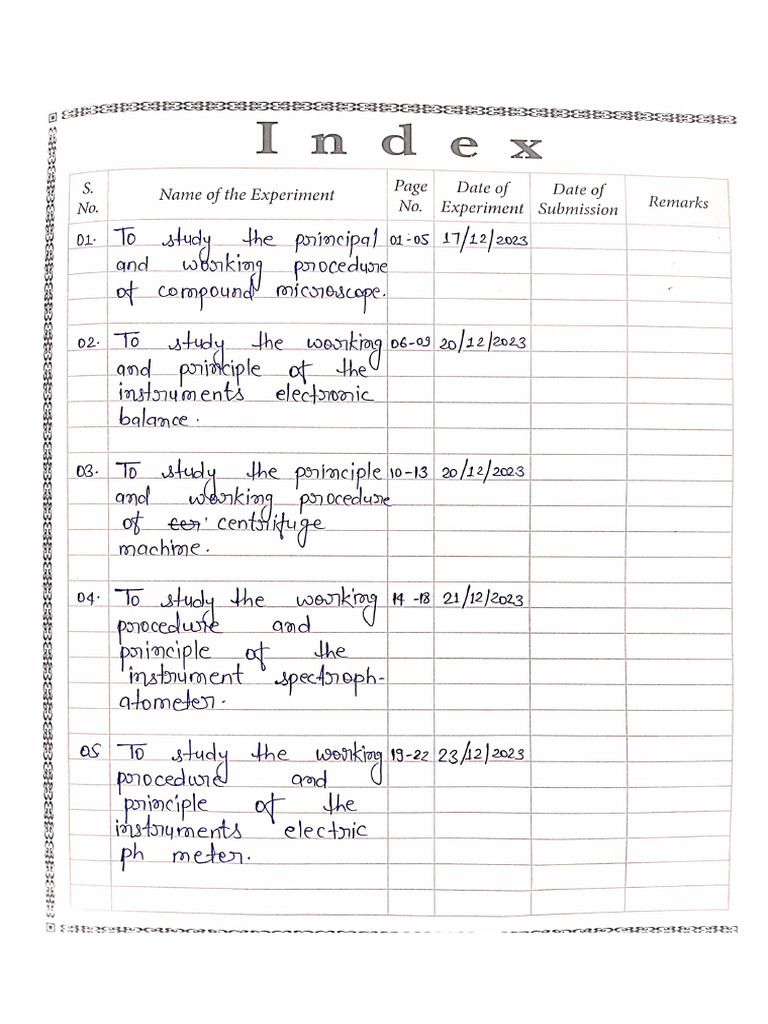 Index
S. No. Name of the Experiment Page No. Date of Experiment Date of Submission Remarks
01. To study the principal 01-05 17/12/2023
and working procedure
of compound microscope.
02. To study the working 06-09 20/12/2023
and principle of the
instruments electronic
balance.
03. To study the principle 10-13 20/12/2023
and working procedure
of cer centrifuge
machine.
04. To study the working 14-18 21/12/2023
procedure and
principle of the
instrument spectroph-
atometer.
05 To study the working 19-22 23/12/2023
procedure and
principle of the
instruments electric
ph meter.